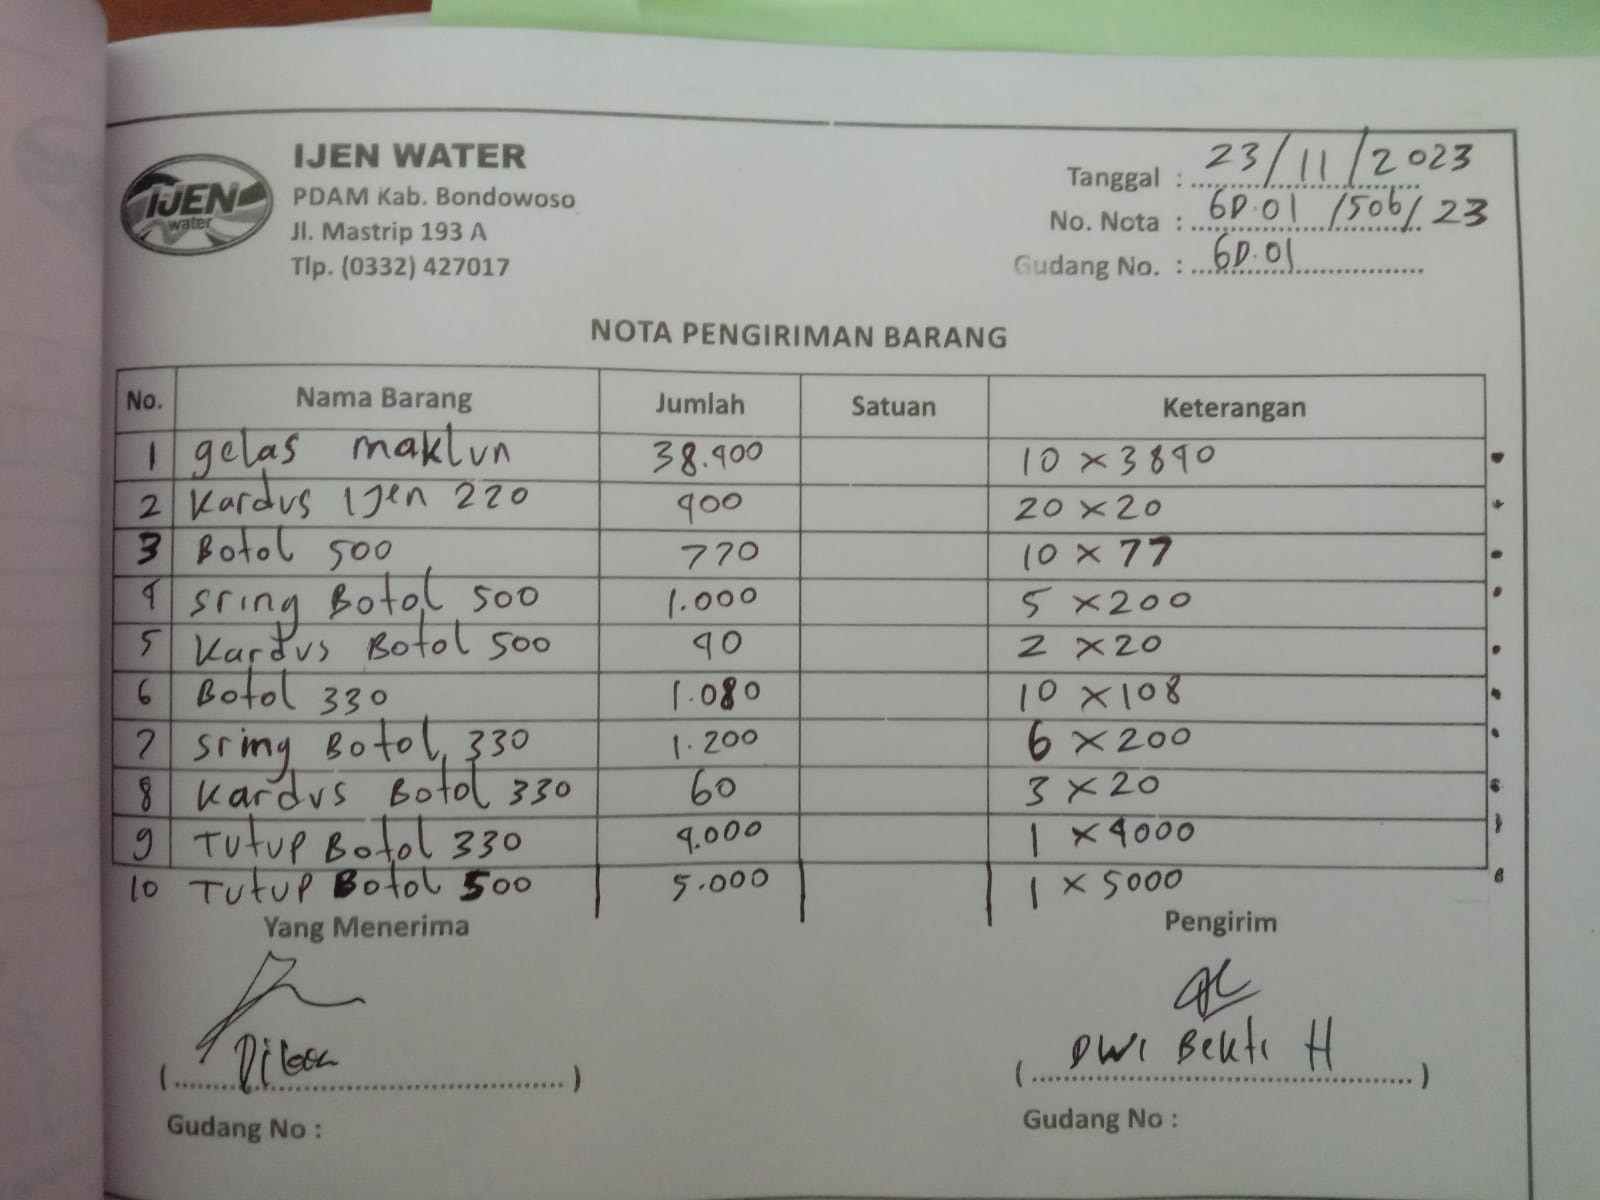 IJEN water
IJEN WATER
PDAM Kab. Bondowoso
Jl. Mastrip 193 A
Tlp. (0332) 427017
Tanggal : 23/11/2023
No. Nota : GD.01 /506/ 23
Gudang No. : GD.01
NOTA PENGIRIMAN BARANG
No. Nama Barang Jumlah Satuan Keterangan
1 gelas maklun 38.900 10 x 3890
2 Kardus Ijen 220 400 20 x 20
3 Botol 500 770 10 x 77
4 sring Botol 500 1.000 5 x 200
5 Kardus Botol 500 40 2 x 20
6 Botol 330 1.080 10 x 108
7 sring Botol 330 1.200 6 x 200
8 Kardus Botol 330 60 3 x 20
9 Tutup Botol 330 4.000 1 x 4000
10 Tutup Botol 500 5.000 1 x 5000
Yang Menerima Pengirim
(..........) (DWI Bekti H)
Gudang No : Gudang No :